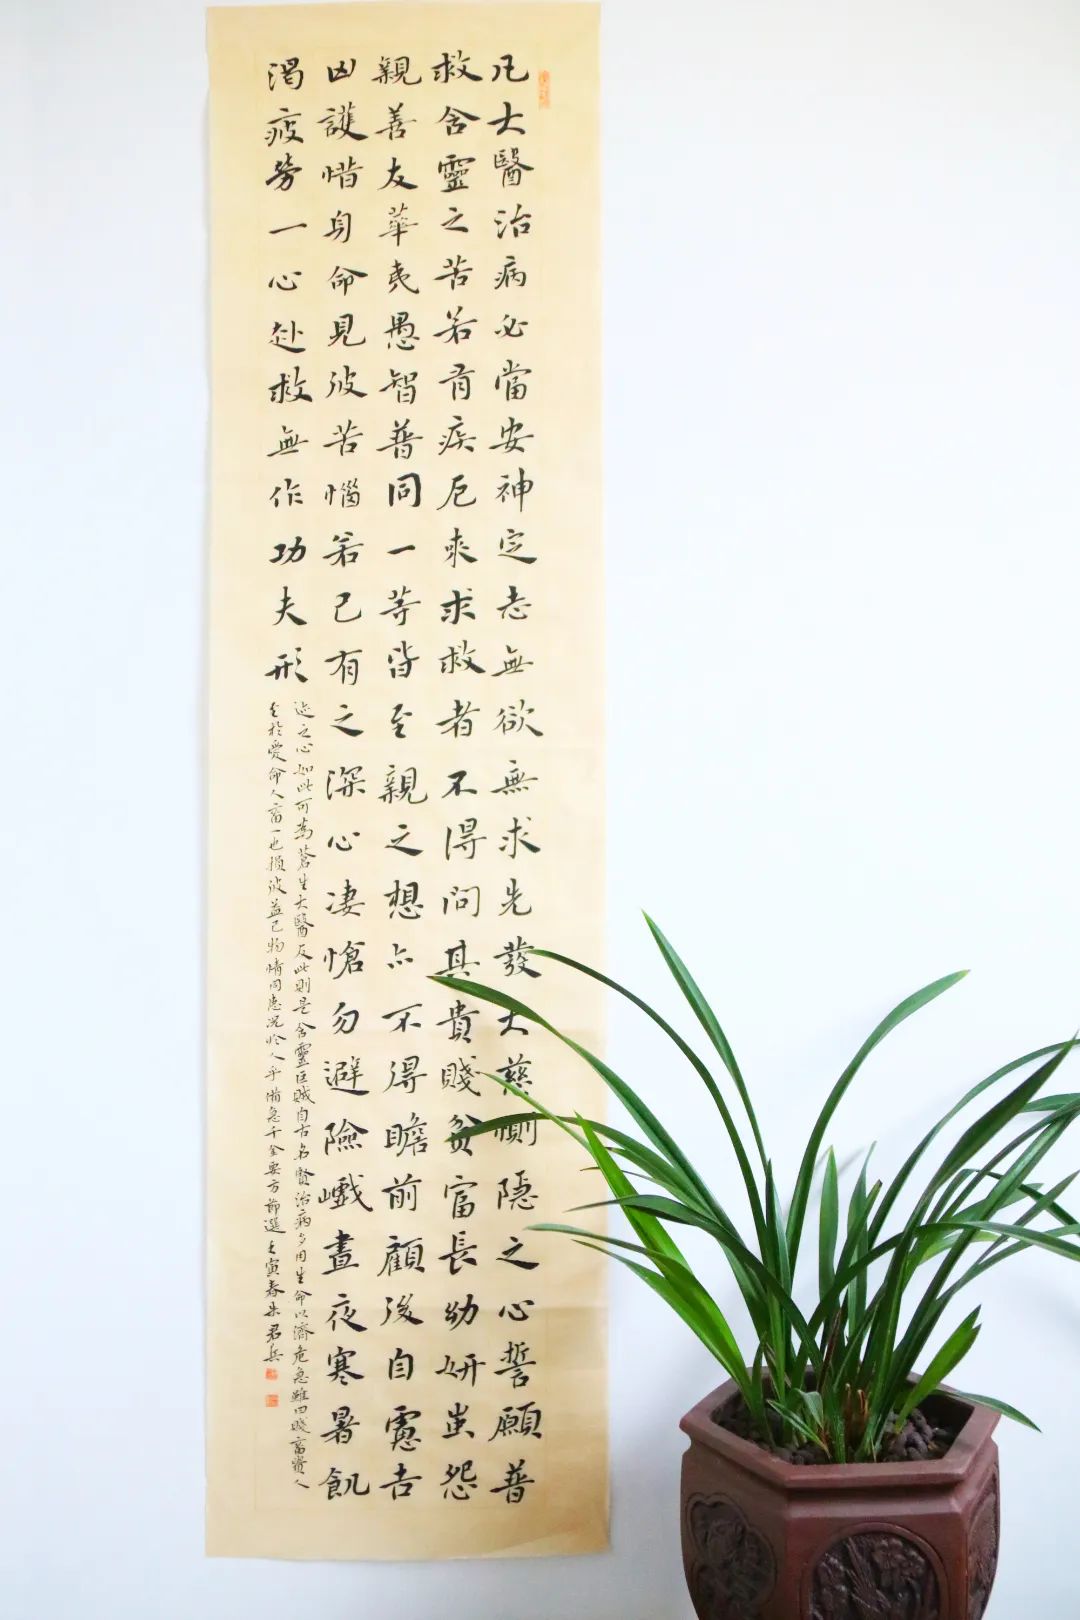 凡大醫治病必當安神定志無欲無求先發大慈惻隱之心誓願普
救含靈之苦若有疾厄來求救者不得問其貴賤貧富長幼妍蚩怨
親善友華夷愚智普同一等皆至親之想亦不得瞻前顧後自慮吉
凶護惜身命見彼苦惱若己有之深心淒愴勿避險巇晝夜寒暑飢
渴疲勞一心赴救無作功夫形
迹之心如此可為蒼生大醫反此則是含靈巨賊自古名賢治病多用生命以濟危急雖曰賤畜貴人
至於愛命人畜一也損彼益己物情同患況於人乎備急千金要方節選 壬寅春朱君兵